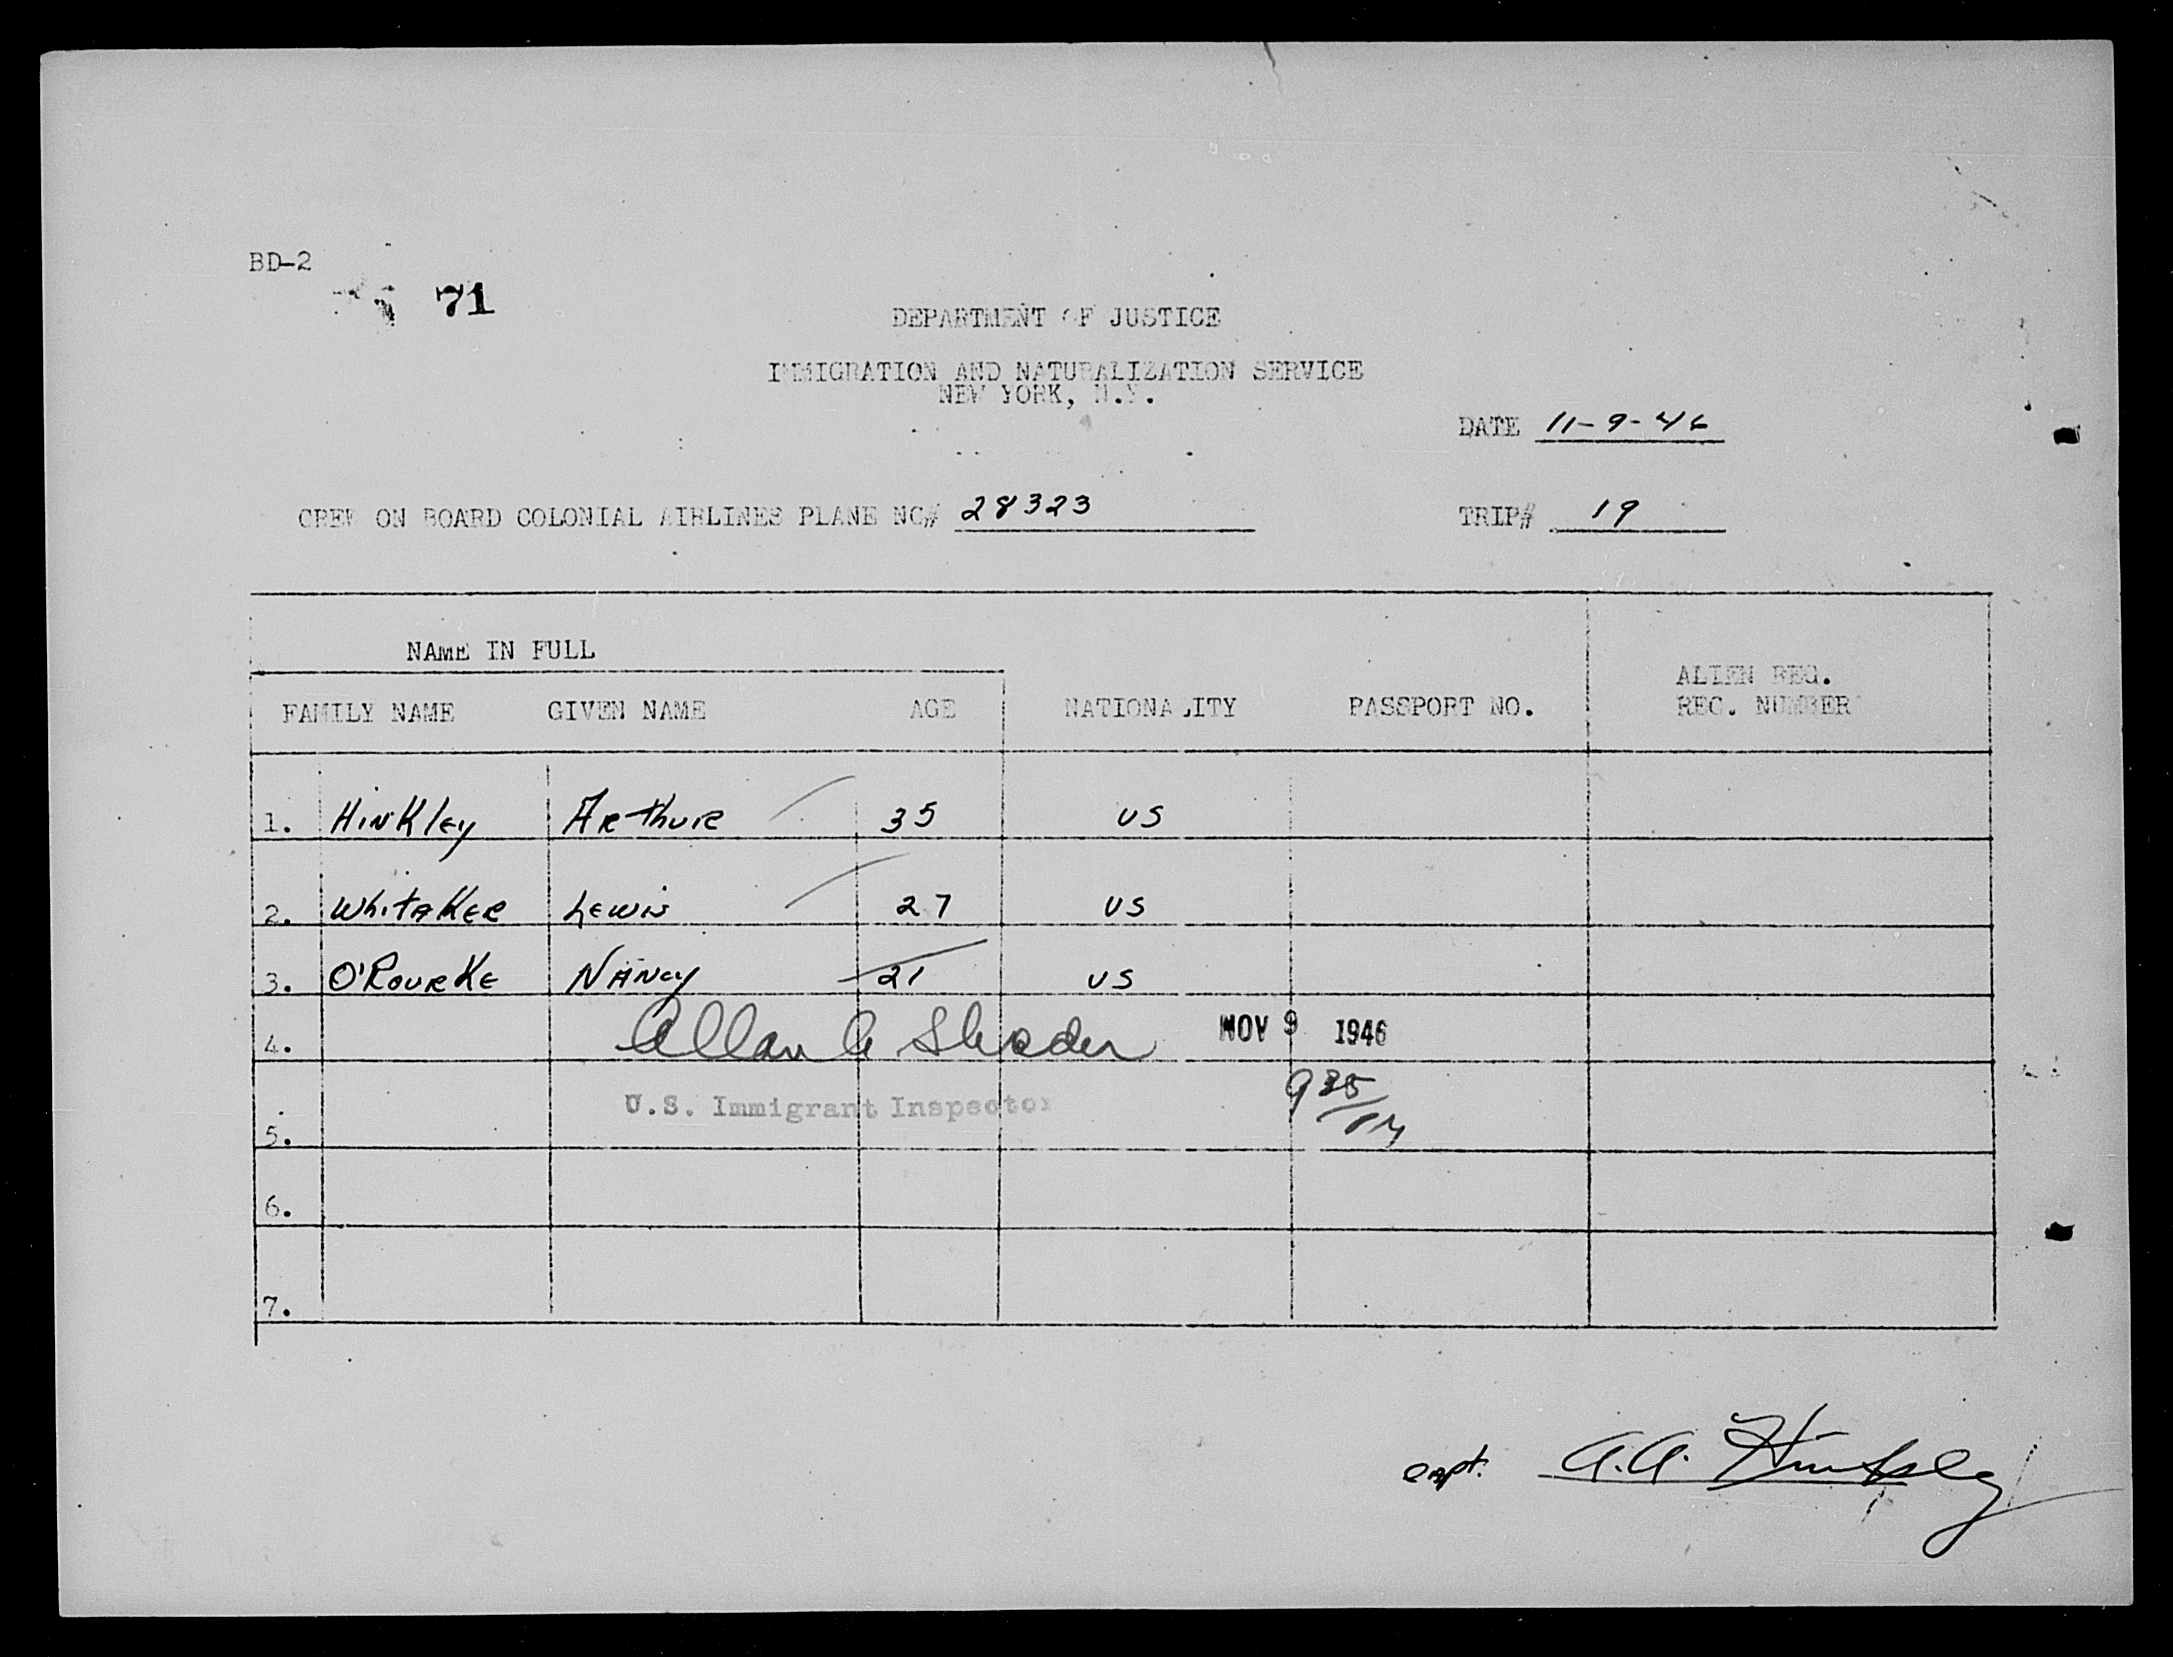 BD-2
71
DEPARTMENT OF JUSTICE
IMMIGRATION AND NATURALIZATION SERVICE
NEW YORK, N.Y.
DATE 11-9-46
CREW ON BOARD COLONIAL AIRLINES PLANE NO# 28323 TRIP# 19
NAME IN FULL
ALIEN REG.
FAMILY NAME GIVEN NAME AGE NATIONALITY PASSPORT NO. REC. NUMBER
1. Hinkley Arthur 35 US
2. Whitaker Lewis 27 US
3. O'Rourke Nancy 21 US
4. Allan A NOV 9 1946
U.S. Immigrant Inspector
5.
6.
7.
capt. A.A. Hinkley